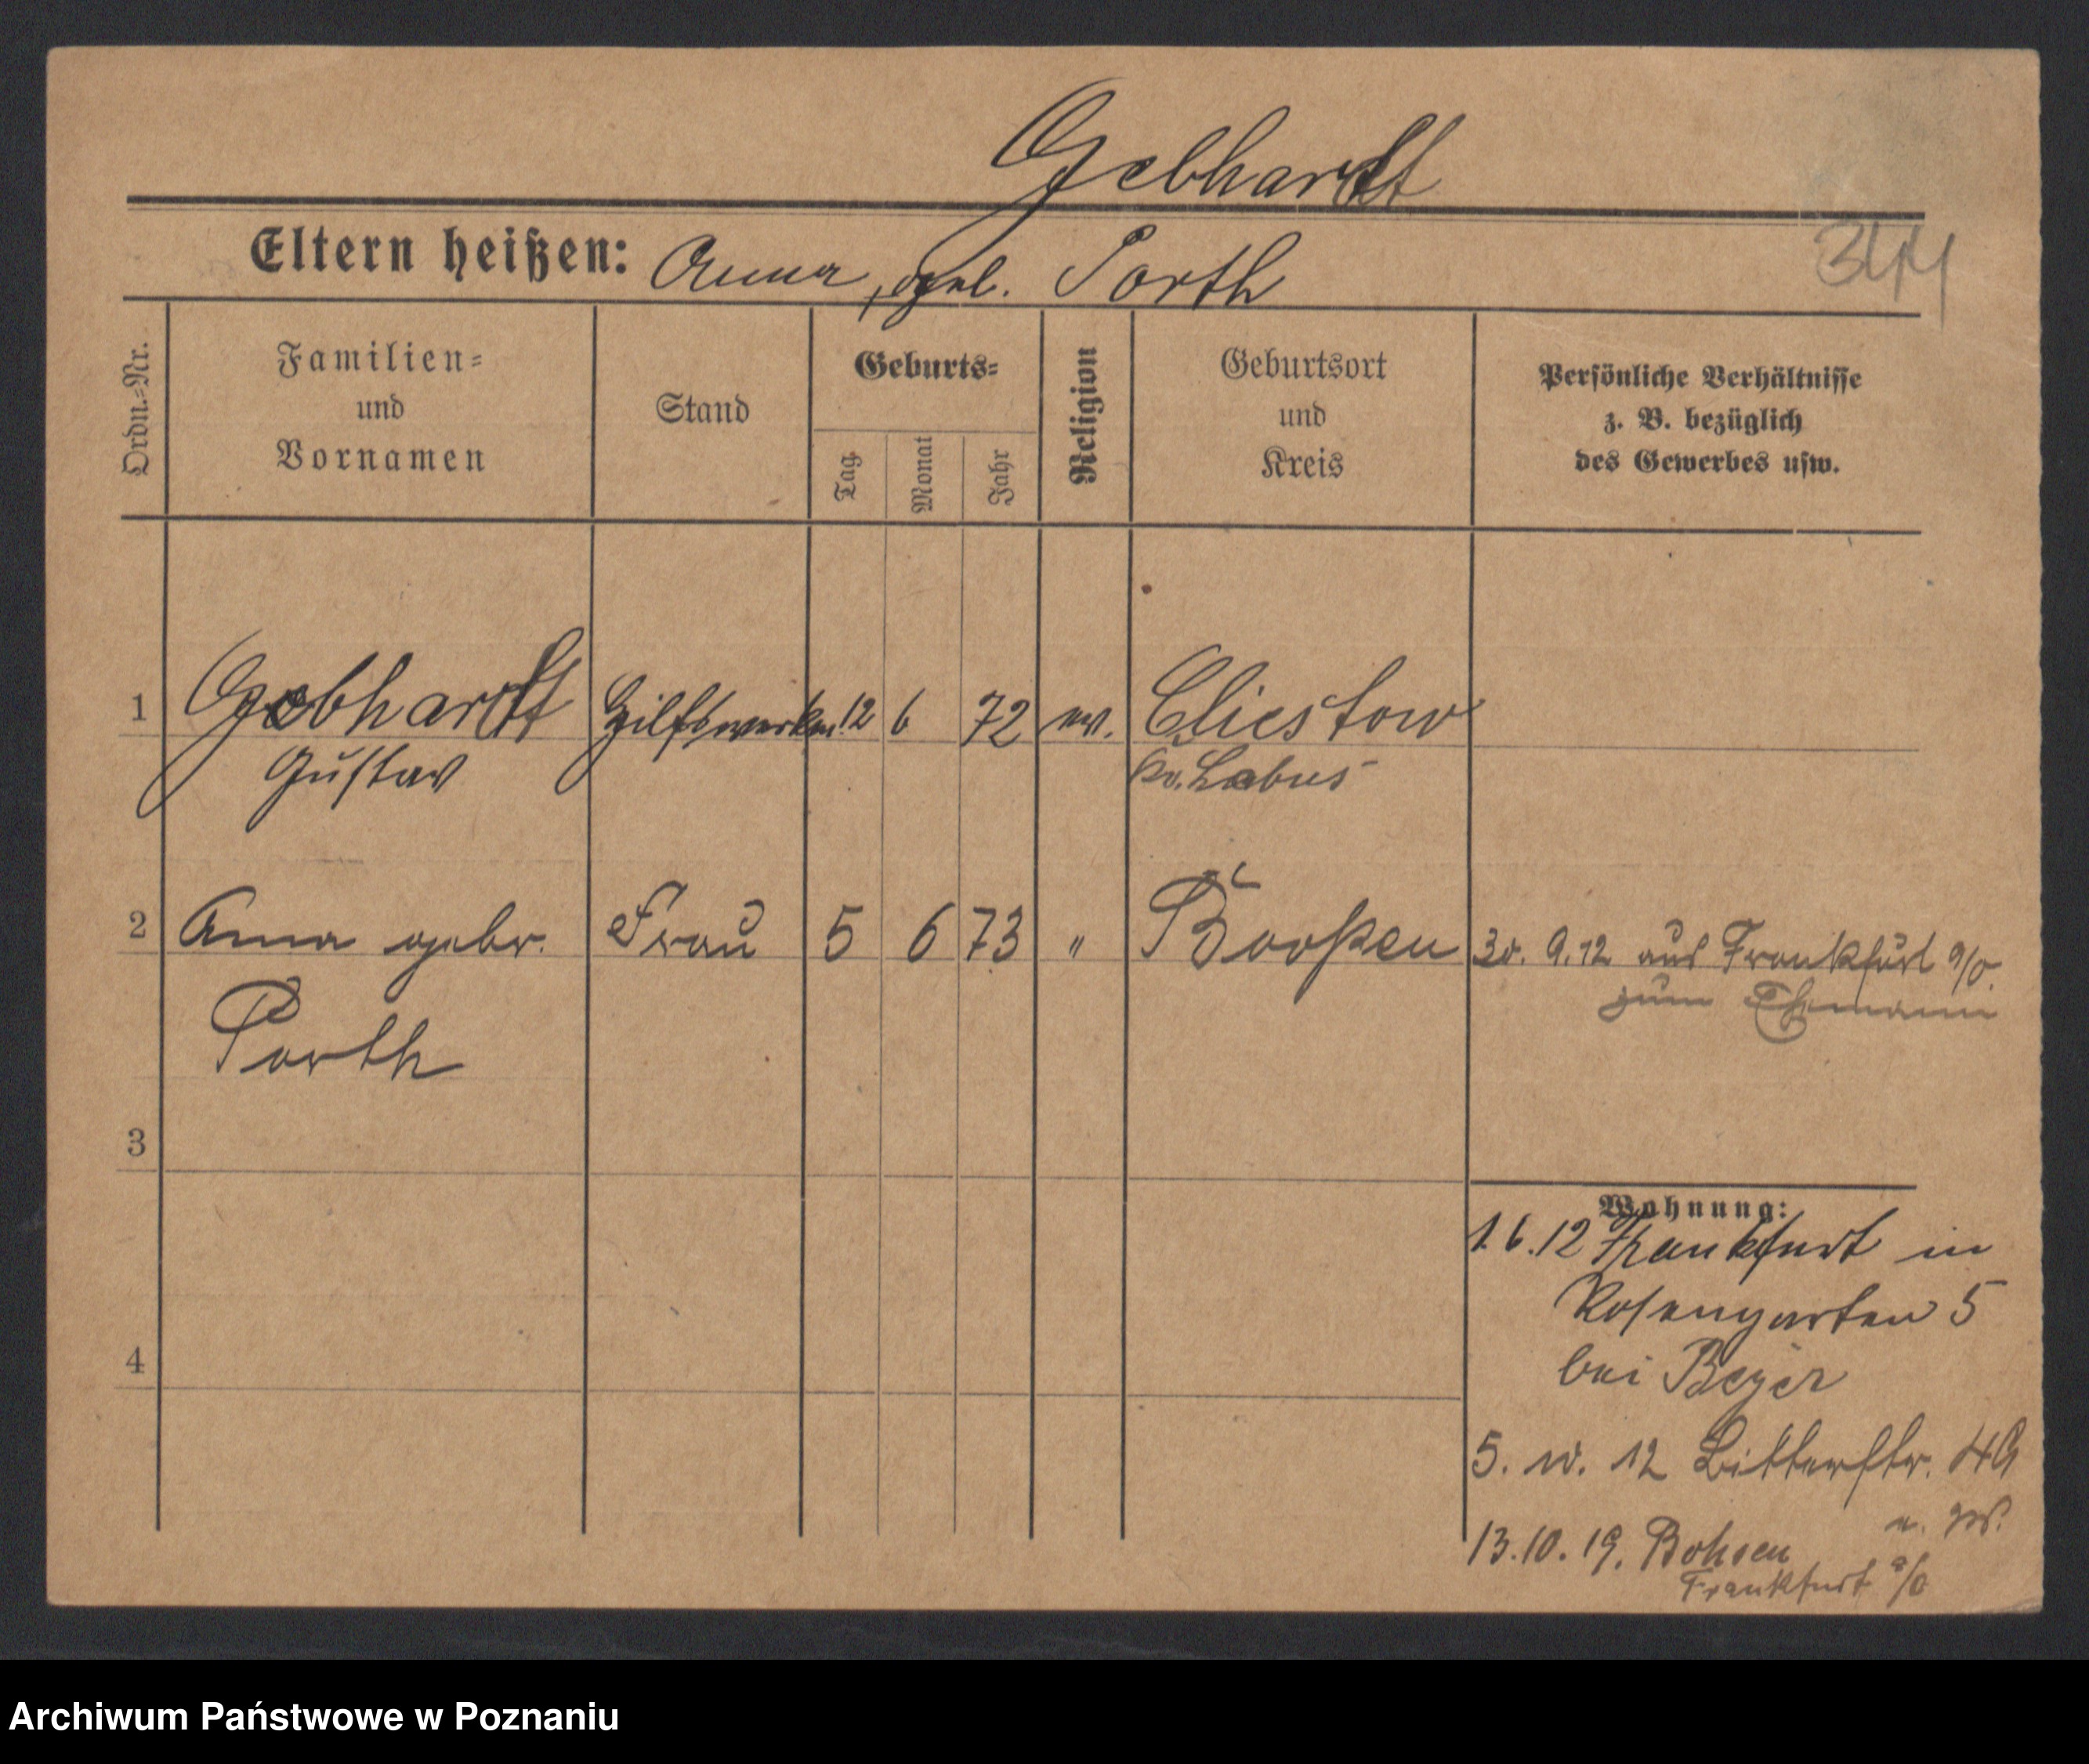 Gebhardt
Eltern heißen: Anna, geb. Porth
344
Ordn.-Nr.
Familien- und Vornamen
Stand
Geburts-
Tag
Monat
Jahr
Religion
Geburtsort und Kreis
Persönliche Verhältnisse
z. B. bezüglich
des Gewerbes usw.
1 Gebhardt Hilfswerkm. 12 6 72 ev. Cliestow
Gustav Kr. Lebus
2 Anna gebr. Frau 5 6 73 " Booßen 30. 9. 12 aus Frankfurt a/O.
zum Ehemann
Porth
3
Wohnung:
1. 6. 12 Frankfurt in
Rosengarten 5
bei Beyer
4
5. 10. 12 Bitterstr. 49
13. 10. 19. Bohsen
Frankfurt a/O
Archiwum Państwowe w Poznaniu